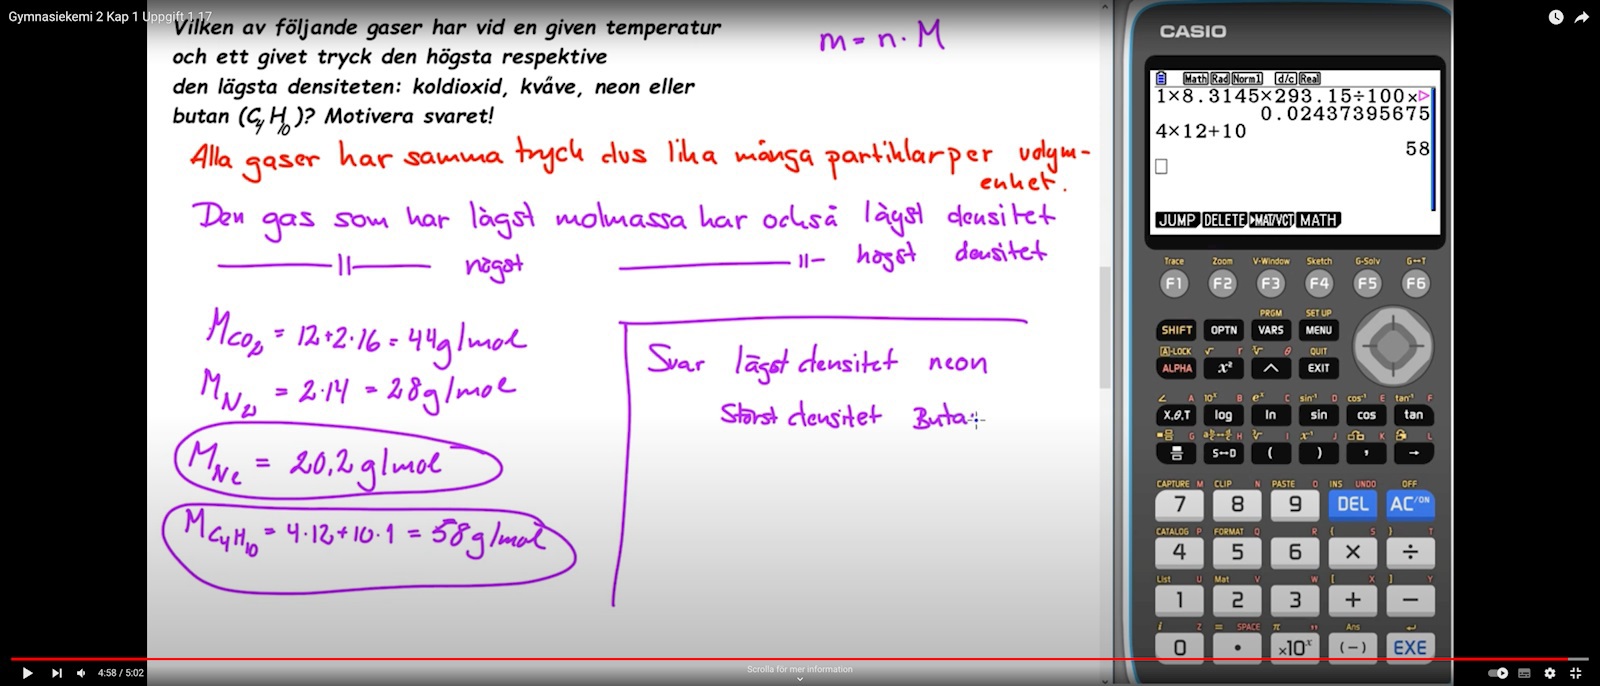 Gymnasiekemi 2 Kap 1 Uppgift 1.17
Vilken av följande gaser har vid en given temperatur
och ett givet tryck den högsta respektive
den lägsta densiteten: koldioxid, kväve, neon eller
butan (C4H10)? Motivera svaret!
m = n · M
Alla gaser har samma tryck dvs lika många partiklar per volym-
enhet.
Den gas som har lägst molmassa har också lägst densitet
—— 11 —— högst —— 11 — högst densitet
MCO2 = 12+2·16 = 44g/mol
MN2 = 2·14 = 28g/mol
MNe = 20,2 g/mol
MC4H10 = 4·12+10·1 = 58g/mol
Svar lägst densitet neon
Störst densitet Buta
CASIO
Math Rad Norm1 d/c Real
1×8.3145×293.15÷100×
0.02437395675
4×12+10
58
JUMP DELETE ▶MAT/VCT MATH
Trace Zoom V-Window Sketch G-Solv G↔T
F1 F2 F3 F4 F5 F6
PRGM SET UP
SHIFT OPTN VARS MENU
A-LOCK QUIT
ALPHA x² ^ EXIT
∠ A 10ˣ B eˣ C sin⁻¹ D cos⁻¹ E tan⁻¹ F
X,θ,T log ln sin cos tan
S↔D ( ) , →
CAPTURE M CLIP N PASTE O INS UNDO OFF
7 8 9 DEL AC/ON
CATALOG P FORMAT Q R { S } T
4 5 6 × ÷
List U Mat V W [ X ] Y
1 2 3 + −
i Z = SPACE π " Ans
0 . ×10ˣ (−) EXE
4:58 / 5:02
Scrolla för mer information